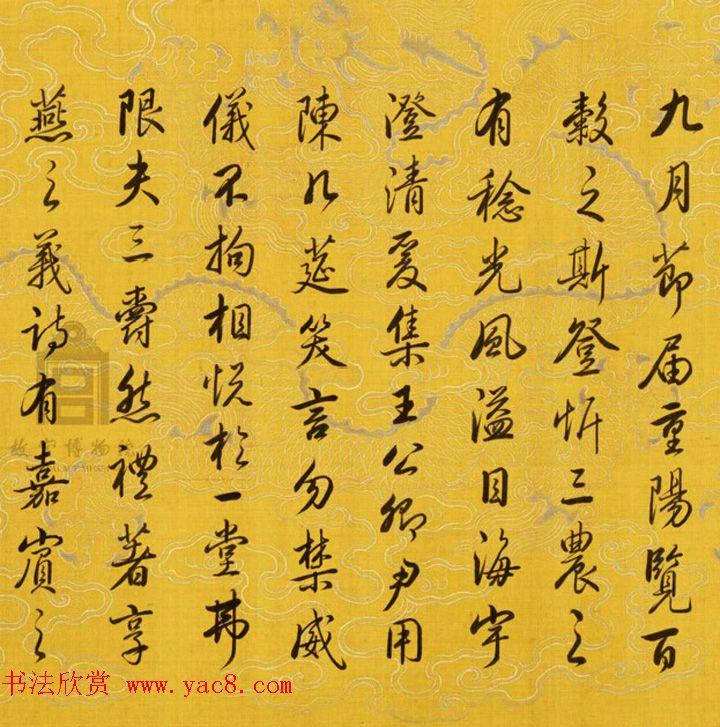 九月節届重陽覽百
穀之斯登忻三農之
有稔光風溢目海宇
澄清爰集王公卿尹用
陳几莚笑言勿禁威
儀不拘相悅於一堂弗
限夫三爵然禮著享
燕之義詩有嘉賓之
故宫博物院
书法欣赏 www.yac8.com